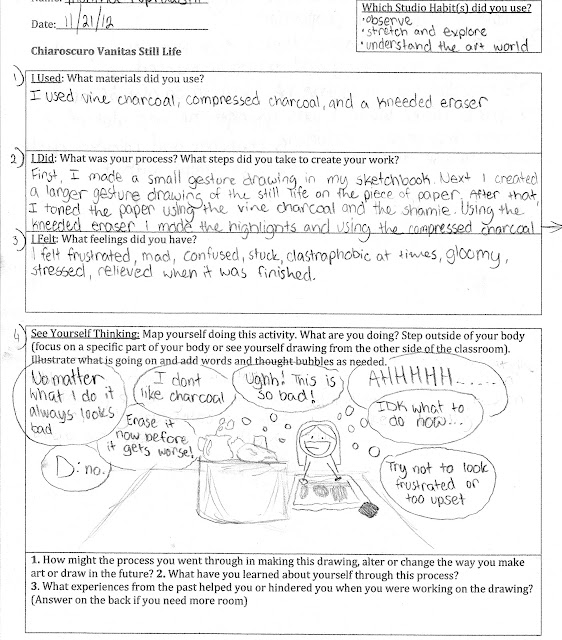 Which Studio Habit(s) did you use?
•observe
•stretch and explore
•understand the art world
Date: 11/21/12
Chiaroscuro Vanitas Still Life
1) I Used: What materials did you use?
I used vine charcoal, compressed charcoal, and a kneeded eraser
2) I Did: What was your process? What steps did you take to create your work?
First, I made a small gesture drawing in my sketchbook. Next I created
a larger gesture drawing of the still life on the piece of paper. After that
I toned the paper using the vine charcoal and the shamie. Using the
kneeded eraser i made the highlights and using the compressed charcoal
3) I Felt: What feelings did you have?
I felt frustrated, mad, confused, stuck, clastrophobic at times, gloomy,
stressed, relieved when it was finished.
4) See Yourself Thinking: Map yourself doing this activity. What are you doing? Step outside of your body
(focus on a specific part of your body or see yourself drawing from the other side of the classroom).
Illustrate what is going on and add words and thought bubbles as needed.
No matter
what I do it
always looks
bad
I dont
like charcoal
Ughh! This is
so bad!
AHHHHH......
Erase it
now before
it gets worse!
IDK what to
do now...
D: no.
Try not to look
frustrated or
too upset
1. How might the process you went through in making this drawing, alter or change the way you make
art or draw in the future? 2. What have you learned about yourself through this process?
3. What experiences from the past helped you or hindered you when you were working on the drawing?
(Answer on the back if you need more room)